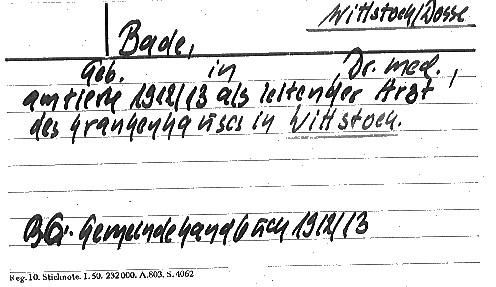 Wittstock/Dosse
Bade,
Geb. in Dr. med.,
amtierte 1912/13 als leitender Arzt
des Krankenhauses in Wittstock.
BG. Gemeindehandbuch 1912/13
Reg. 10. Stichnote. I. 50. 232000. A.803. S. 4062